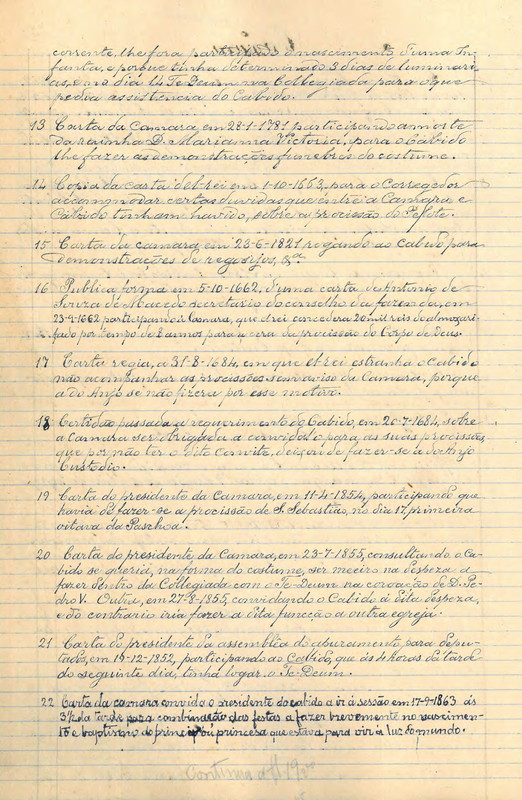 corrente, lhe fora participado o nascimento d'uma In-
fanta, e porque tinha determinado 3 dias de luminari-
as, e no dia 14 Te Deum na Collegiada para o que
pedia assistencia do Cabido.
13 Carta da Camara, em 28-1-1781 participando a morte
da rainha D. Marianna Victoria, para o Cabido
lhe fazer as demonstrações funebres do costume.
14 Copia da carta del-rei em 1-10-1663, para o Corregedor
accommodar certas duvidas que entre a Camara e
Cabido tinham havido, sobre a procissão do Pelote.
15 Carta da camara, em 23-6-1821 rogando ao Cabido para
demonstrações de regosijos, &ª.
16 Publica forma em 5-10-1662, d'uma carta de Antonio de
Souza de Macedo secretario do conselho da fazenda, em
23-9-1662 participando á Camara, que el rei concedera 20 mil reis do almoxari-
fado por tempo de annos para a cera da procissão do Corpo de Deus.
17 Carta regia, a 31-8-1684, em que El-rei estranha o Cabido
não acompanhar as procissões sem aviso da Camara, porque
a do Anjo se não fizera por esse motivo.
18 Certidão passada a requerimento do Cabido, em 20-7-1684, sobre
a Camara ser obrigada a convidal-o para as suas procissões,
que por não ter o dito convite, deixou de fazer-se a do Anjo
Custodio.
19 Carta do presidente da Camara, em 11-4-1854, participando que
havia de fazer-se a procissão de S. Sebastião, no dia 17, primeira
oitava da Paschoa.
20 Carta do presidente da Camara, em 23-7-1855, consultando o Ca-
bido se queria, na forma do costume, ser meeiro na despeza a
fazer dentro da Collegiada com o Te-Deum na coroação de D. Pe-
dro V. Outra, em 27-8-1855, convidando o Cabido á dita despeza,
e do contrario iria fazer a dita funcção a outra egreja.
21 Carta do presidente da assemblêa do apuramento para depu-
tados, em 19-12-1852, participando ao Cabido, que ás 4 horas da tarde
do seguinte dia, tinha logar o Te-Deum.
22 Carta da camara convida o presidente do cabido a vir á sessão em 17-9-1863 ás
3½ da tarde para combinação das festas a fazer brevemente no nascimen-
to e baptismo do principe ou princesa que estava para vir á luz do mundo.
Continua a fl 19